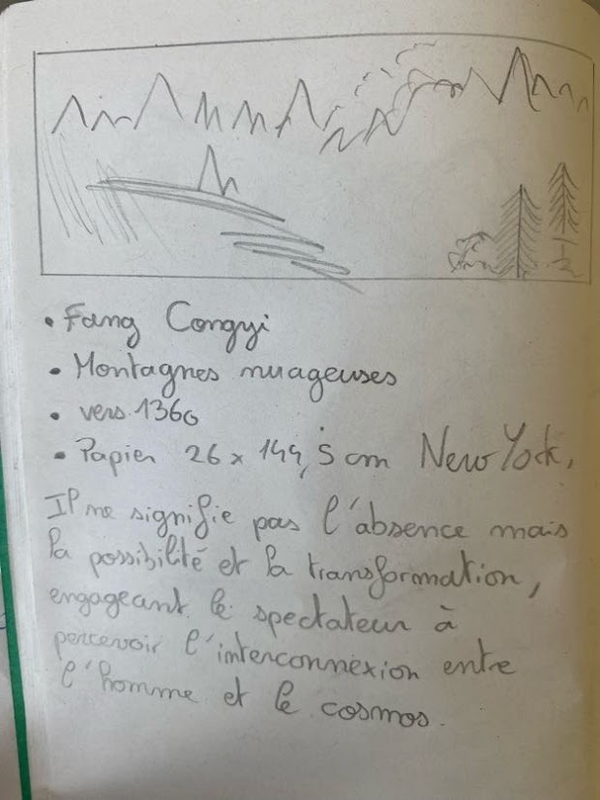 • Fang Congyi
• Montagnes nuageuses
• vers 1360
• Papier 26 x 144,5 cm New York,
Il ne signifie pas l'absence mais
la possibilité et la transformation,
engageant le spectateur à
percevoir l'interconnexion entre
l'homme et le cosmos.